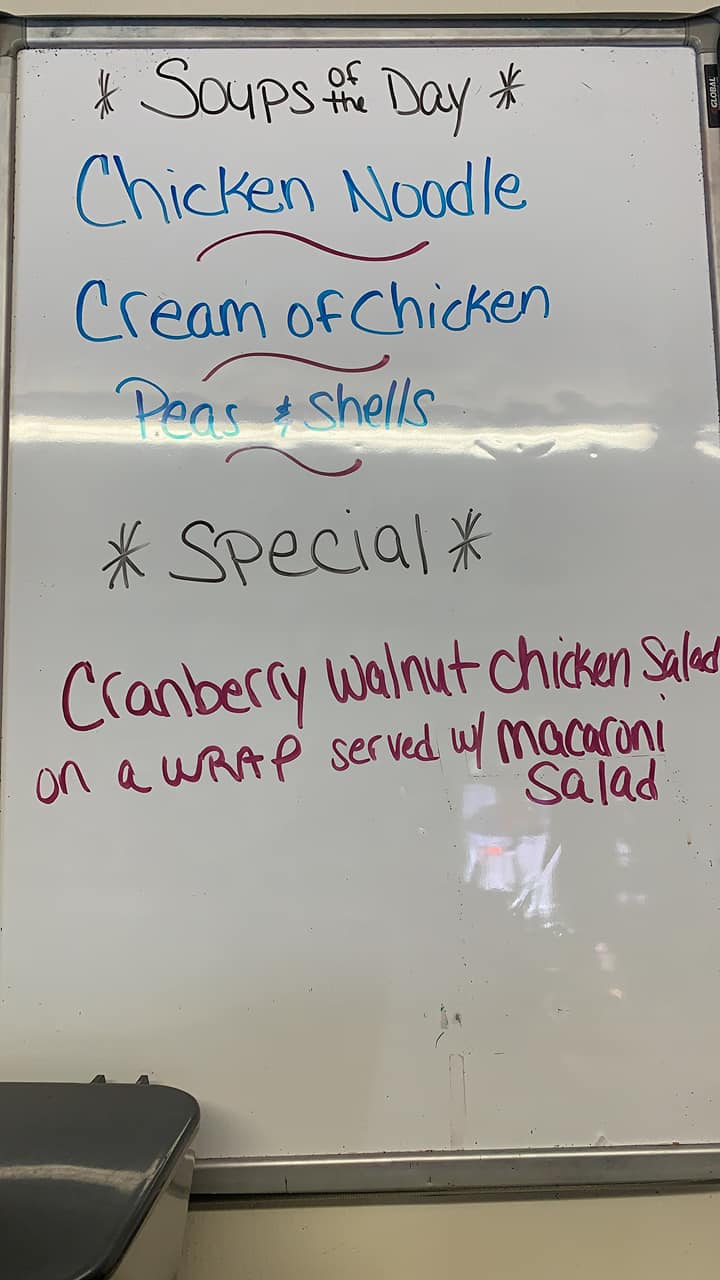 * Soups of the Day *
Chicken Noodle
Cream of Chicken
Peas & Shells
* Special *
Cranberry Walnut Chicken Salad
on a WRAP served w/ macaroni
Salad
GLOBAL